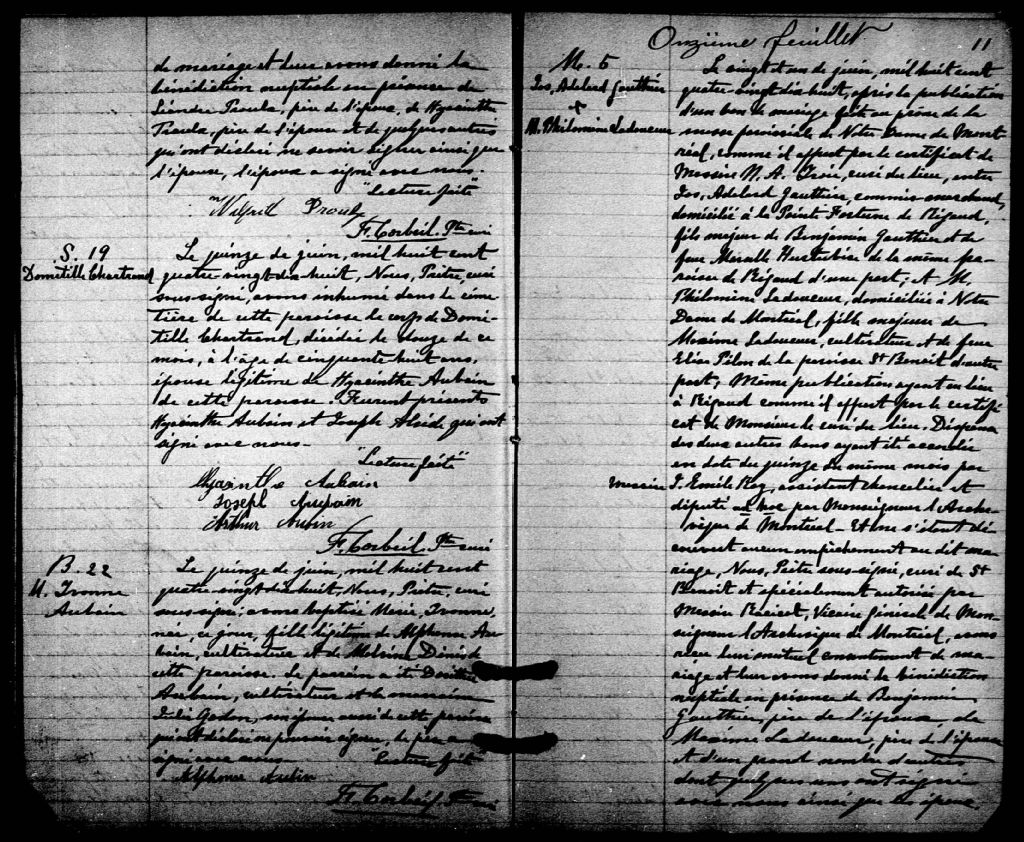 de mariage et leur avons donné la
bénédiction nuptiale en présence de
Léandre Proulx, père de l'époux, de Hyacinthe
Proulx, père de l'épouse et de quelques autres
qui ont déclaré ne savoir signer ainsi que
l'épouse, l'époux a signé avec nous.
"Lecture faite"
Wilfrid Proulx
F. Corbeil Ptre curé
S. 19
Domitille Chartrand
Le quinze de juin, mil huit cent
quatre-vingt dix huit, Nous, Prêtre, curé
sous-signé, avons inhumé dans le cime-
tière de cette paroisse le corps de Domi-
tille Chartrand, décédée le douze de ce
mois, à l'âge de cinquante huit ans,
épouse légitime de Hyacinthe Aubain
de cette paroisse. Furent présents
Hyacinthe Aubain et Joseph qui ont
signé avec nous.
"Lecture faite"
Hyacinthe Aubain
Joseph Aubain
Arthur Aubin
F. Corbeil Ptre curé
B. 22
M. Ivonne
Aubain
Le quinze de juin, mil huit cent
quatre-vingt dix huit, Nous, Prêtre, curé
sous-signé, avons baptisé Marie, Ivonne,
née, ce jour, fille légitime de Alphonse Au-
bain, cultivateur et de Melvina Denis de
cette paroisse. Le parrain a été
Aubain, cultivateur et la marraine
Julie Godon, son épouse aussi de cette paroisse
qui ont déclaré ne pouvoir signer, le père a
signé avec nous. "Lecture faite"
Alphonse Aubin
F. Corbeil Ptre curé
Onzième feuillet 11
M. 5
Jos, Adelard Gauthier
+
M. Philomine Ladouceur
Le vingt et un de juin, mil huit cent
quatre-vingt dix huit, après la publication
d'un ban de mariage faite au prône de la
messe paroissiale de Notre Dame de Mont-
réal, comme il appert par le certificat de
Messire N. A. Troie, curé du lieu, entre
Jos, Adelard Gauthier, commis-marchand,
domicilié à la Pointe Fortune de Rigaud,
fils majeur de Benjamin Gauthier et de
feue Hurtubise de la même pa-
roisse de Rigaud d'une part; et M.
Philomine Ladouceur, domiciliée à Notre
Dame de Montréal, fille majeure de
Maxime Ladouceur, cultivateur et de feue
Pilon de la paroisse St Benoit d'autre
part; Même publication ayant eu lieu
à Rigaud comme il appert par le certifi-
cat de Monsieur le curé du lieu. Dispense
des deux autres bans ayant été accordée
en date du quinze du même mois par
Messire J. Emile Roy, assistant chancelier et
député ad hoc par Monseigneur l'Arche-
vêque de Montréal - Et ne s'étant dé-
couvert aucun empêchement au dit ma-
riage, Nous, Prêtre sous-signé, curé de St
Benoit et spécialement autorisé par
Messire Racicot, Vicaire général de Mon-
seigneur l'Archevêque de Montréal, avons
reçu leur mutuel consentement de ma-
riage et leur avons donné la bénédiction
nuptiale en présence de Benjamin
Gauthier, père de l'époux, de
Maxime Ladouceur, père de l'épouse
et d'un grand nombre d'autres
dont quelques uns ont signé
avec nous ainsi que les époux.